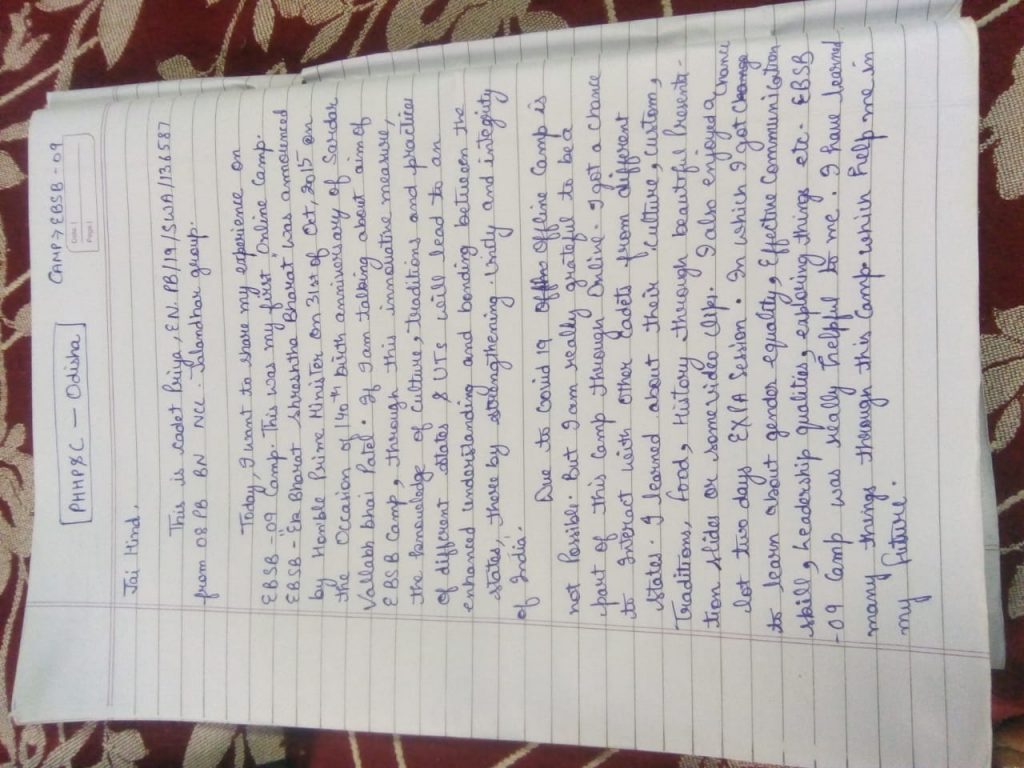 PHHP&C — Odisha
CAMP → EBSB - 09
Date:
Page:
Jai Hind,
This is cadet Priya, EN. PB/19/SWA/136587
from 08 PB BN NCC. Jalandhar group.
Today, I want to share my experience on
EBSB -09 Camp. This was my first Online Camp.
EBSB - "Ek Bharat shreshtha Bharat" was announced
by Honible Prime Miniter on 31st of Oct, 2015 on
the Occasion of 140th birth anniversary of Sardar
Vallabh bhai Patel. If I am talking about aim of
EBSB Camp, through this innovative measure,
the knowledge of culture, traditions and practice
of different states & UTs will lead to an
enhanced understanding and bonding between the
states, there by strengthening. Unity and integrity
of India.
Due to Covid 19 Offline Camp is
not Possible. But I am really grateful to be a
part of this Camp through Online. I got a chance
to Interact with other Cadets from different
states. I learned about their culture, custom,
Traditions, food, History through beautiful Presenta-
tion slides or some video clips. I also enjoyed a
lot two days EXPA Session. In which I got chance
to learn about gender equality, Effective Communication
skill, Leadership qualities, exploring things etc. EBSB
-09 Camp was really helpful to me. I have learned
many things through this Camp which help me in
my future.